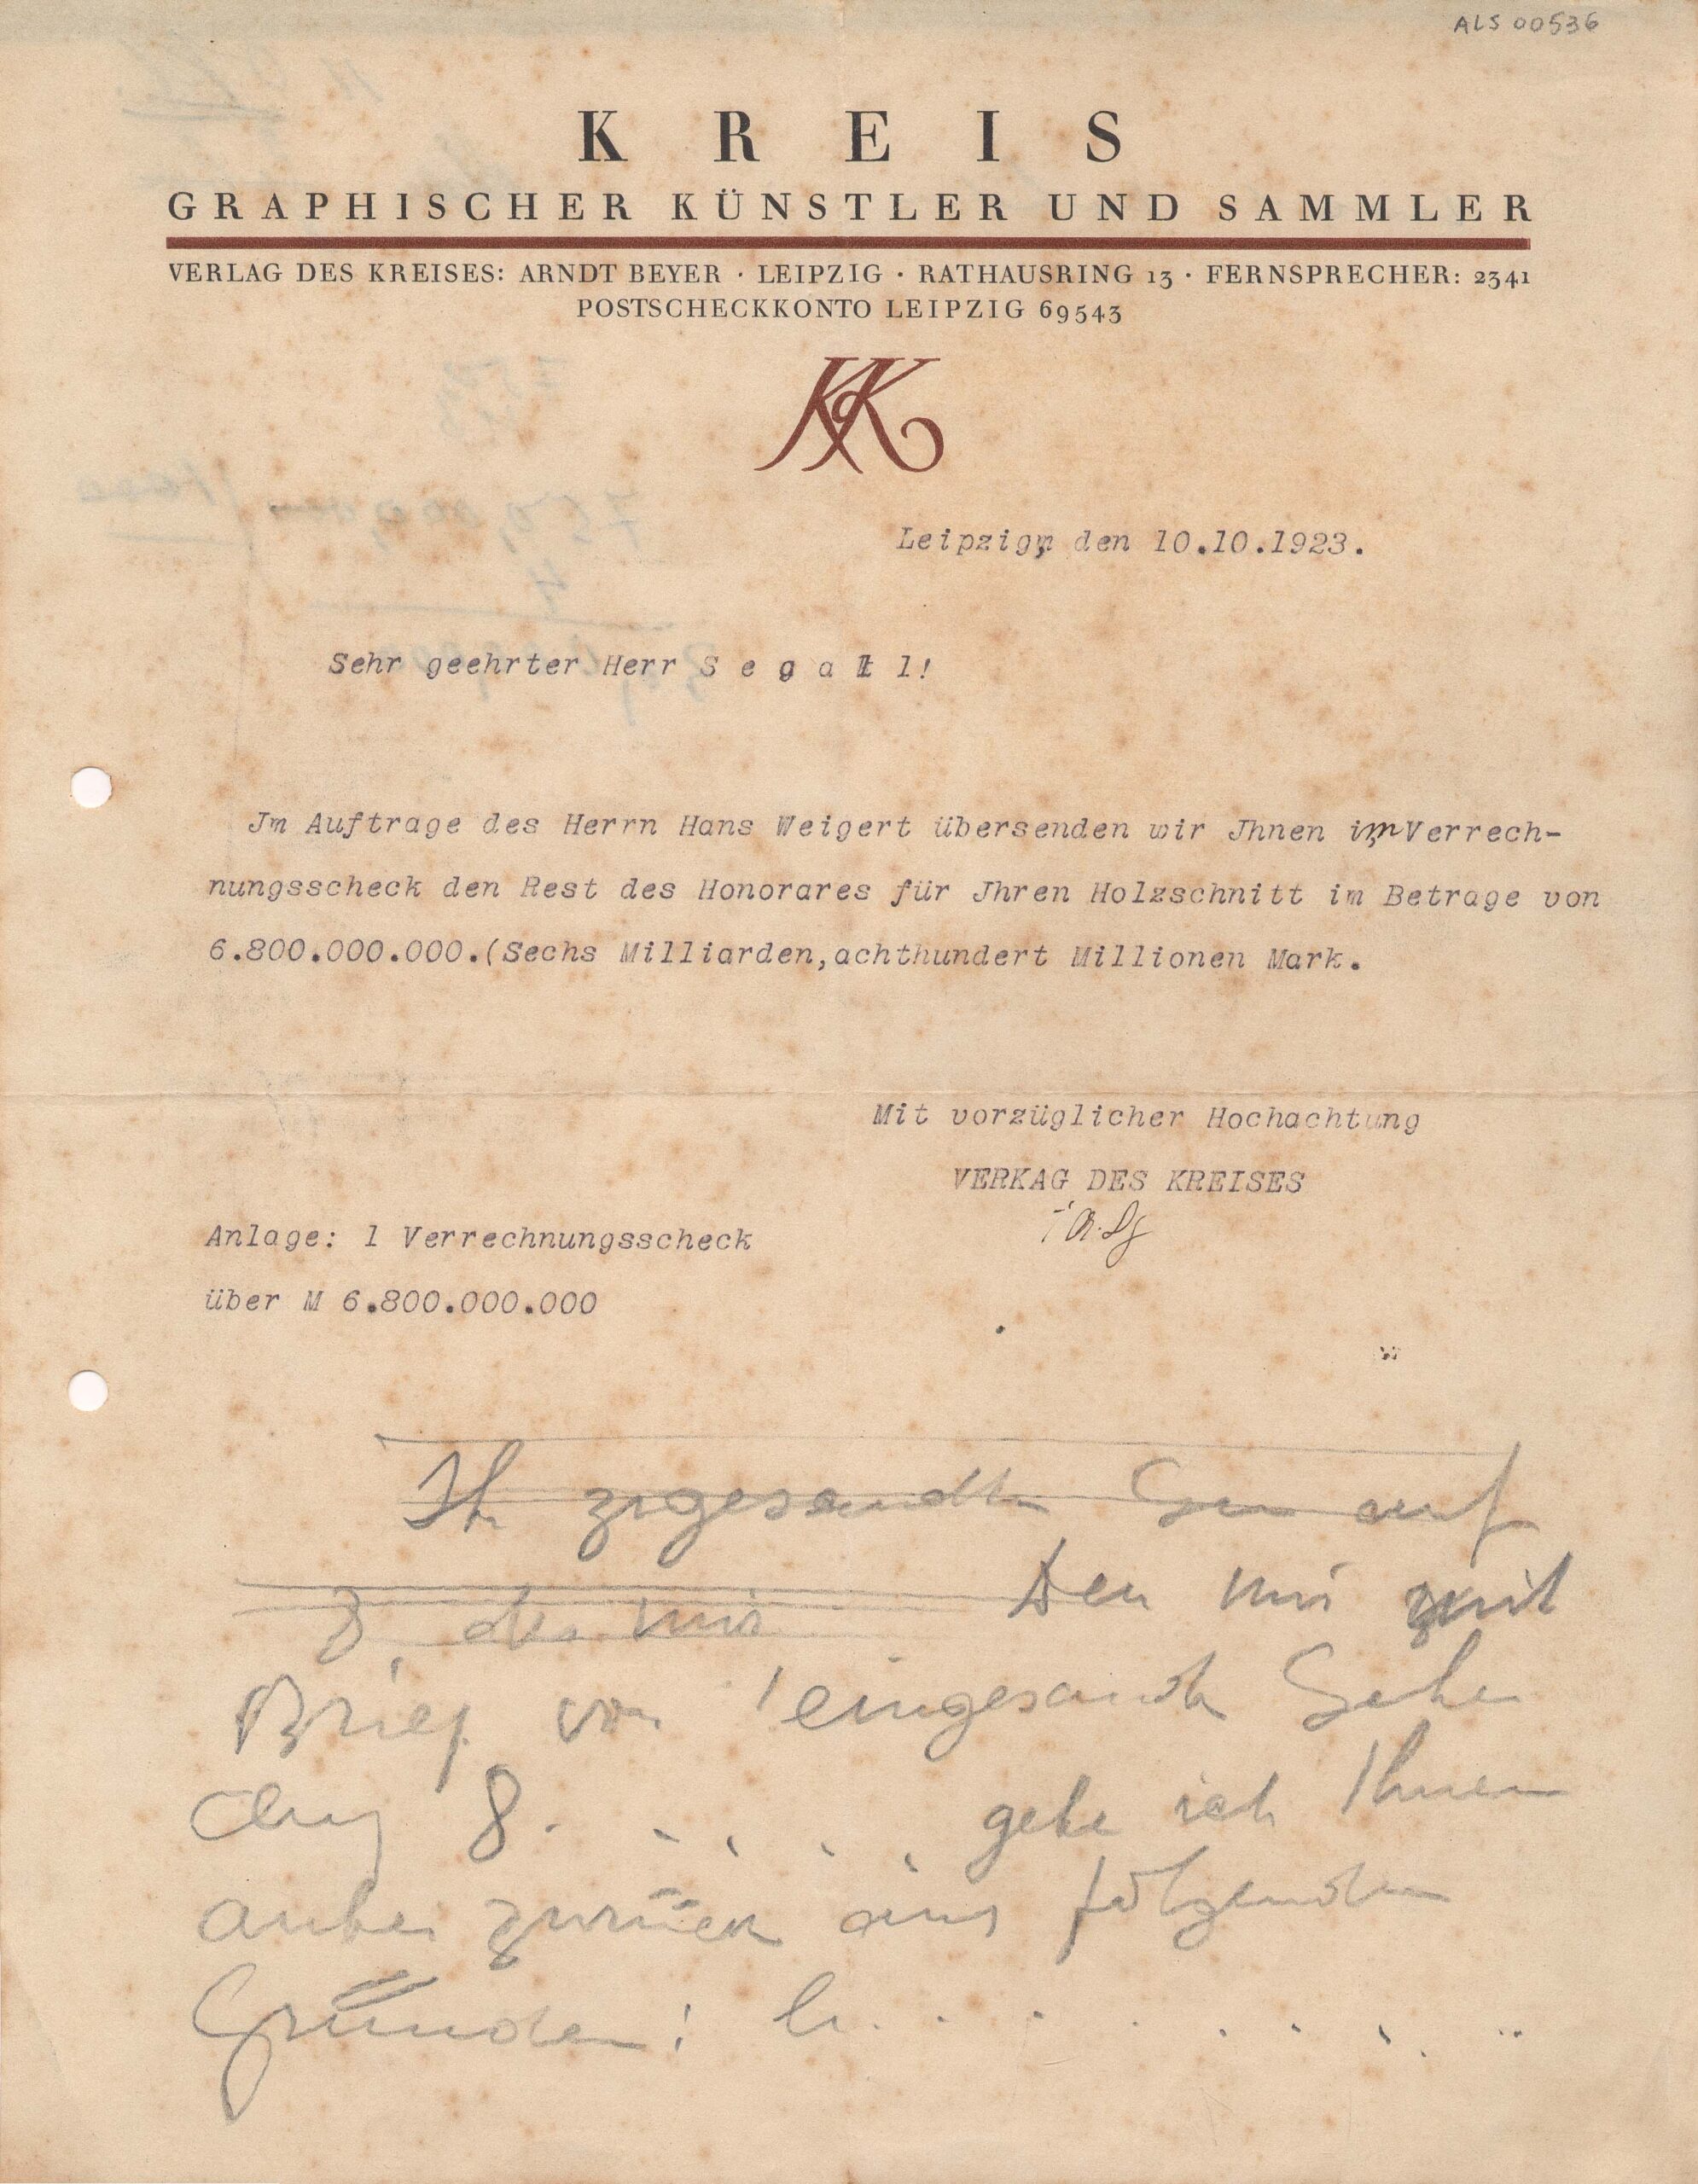 ALS 00536
KREIS
GRAPHISCHER KÜNSTLER UND SAMMLER
VERLAG DES KREISES: ARNDT BEYER · LEIPZIG · RATHAUSRING 13 · FERNSPRECHER: 2341
POSTSCHECKKONTO LEIPZIG 69543
Leipzig, den 10.10.1923.
Sehr geehrter Herr S e g a l l!
Jm Auftrage des Herrn Hans Weigert übersenden wir Jhnen im Verrech-
nungsscheck den Rest des Honorares für Jhren Holzschnitt im Betrage von
6.800.000.000.(Sechs Milliarden,achthundert Millionen Mark.
Mit vorzüglicher Hochachtung
VERKAG DES KREISES
Anlage: 1 Verrechnungsscheck
über M 6.800.000.000
zugesandten auf
mir Den mir mit
Brief von eingesandte
8. . . . . . gebe ich Ihnen
anbei zurück aus folgenden
Gründen: